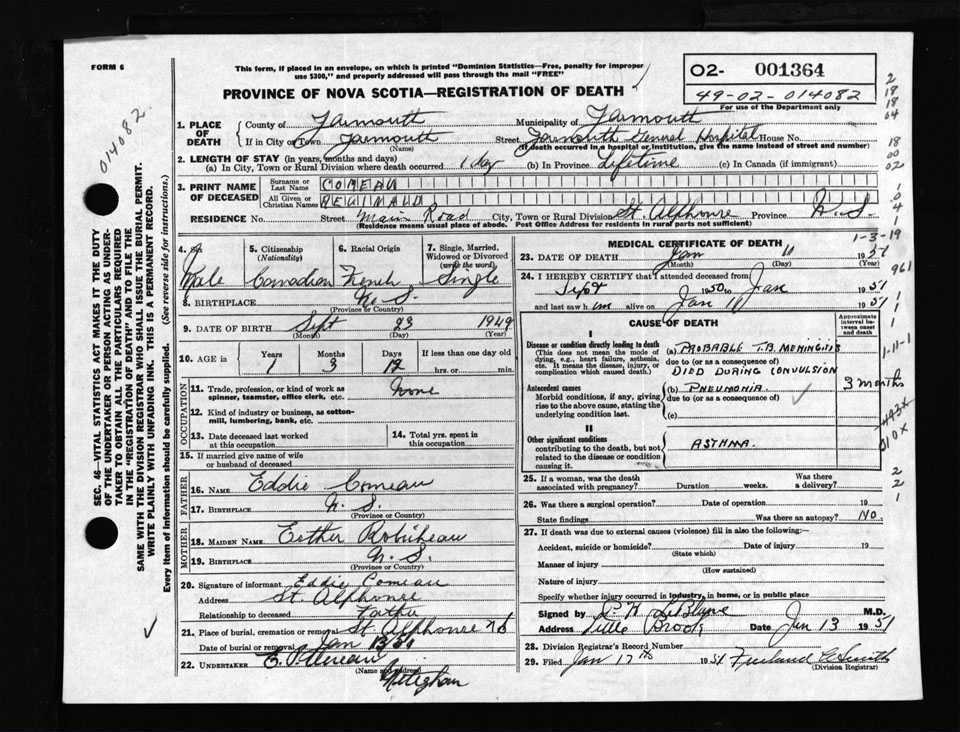 FORM 6
This form, if placed in an envelope, on which is printed "Dominion Statistics—Free, penalty for improper
use $300," and properly addressed will pass through the mail "FREE"
PROVINCE OF NOVA SCOTIA—REGISTRATION OF DEATH
O2- 001364
49-02-014082
For use of the Department only
014082
1. PLACE OF DEATH
County of Yarmouth Municipality of Yarmouth
If in City or Town Yarmouth Street Yarmouth General Hospital House No.
(Name) (If death occurred in a hospital or institution, give the name instead of street and number)
2. LENGTH OF STAY (in years, months and days)
(a) In City, Town or Rural Division where death occurred 1 day (b) In Province Lifetime (c) In Canada (if immigrant)
3. PRINT NAME OF DECEASED
Surname or Last Name COMEAU
All Given or Christian Names
RESIDENCE No. Street Main Road City, Town or Rural Division St. Alphonse Province N.S.
(Residence means usual place of abode. Post Office Address for residents in rural parts not sufficient)
4. Male
5. Citizenship (Nationality) Canadian
6. Racial Origin French
7. Single, Married, Widowed or Divorced (write the word) Single
8. BIRTHPLACE N.S.
(Province or Country)
9. DATE OF BIRTH Sept 23 1949
(Month) (Day) (Year)
10. AGE in Years Months Days If less than one day old
1 3 hrs. or min.
OCCUPATION
11. Trade, profession, or kind of work as
spinner, teamster, office clerk, etc. None
12. Kind of industry or business, as cotton-
mill, lumbering, bank, etc.
13. Date deceased last worked at this occupation
14. Total yrs. spent in this occupation
15. If married give name of wife
or husband of deceased
FATHER
16. NAME Eddie Comeau
17. BIRTHPLACE N.S.
(Province or Country)
MOTHER
18. MAIDEN NAME Esther Robicheau
19. BIRTHPLACE N.S.
(Province or Country)
20. Signature of informant Eddie Comeau
Address St. Alphonse
Relationship to deceased Father
21. Place of burial, cremation or removal St. Alphonse NS
Date of burial or removal Jan 13
22. UNDERTAKER
(Name and address)
Meteghan
MEDICAL CERTIFICATE OF DEATH
1-3-19
23. DATE OF DEATH Jan 11 1951
(Month) (Day) (Year)
24. I HEREBY CERTIFY that I attended deceased from
Sept 1950 to Jan 1951
and last saw him alive on Jan 1951
CAUSE OF DEATH
Approximate interval between onset and death
I
Disease or condition directly leading to death
(This does not mean the mode of
dying, e.g., heart failure, asthenia,
etc. It means the disease, injury, or
complication which caused death.)
(a) PROBABLE T.B. MENINGITIS
due to (or as a consequence of)
DIED DURING CONVULSION
Antecedent causes
Morbid conditions, if any, giving
rise to the above cause, stating the
underlying condition last.
(b) PNEUMONIA.
due to (or as a consequence of)
(c)
3 months
II
Other significant conditions
contributing to the death, but not
related to the disease or condition
causing it.
ASTHMA.
961
1-11-1
010X
25. If a woman, was the death
associated with pregnancy? Duration weeks. Was there a delivery?
26. Was there a surgical operation? Date of operation 19
State findings Was there an autopsy? NO.
27. If death was due to external causes (violence) fill in also the following:
Accident, suicide or homicide? Date of injury 19
(State which)
Manner of injury
(How sustained)
Nature of injury
Specify whether injury occurred in industry, in home, or in public place
Signed by LeBlanc M.D.
Address Little Brook Date Jan 13 1951
28. Division Registrar's Record Number
29. Filed Jan 17th 1951 Freeland Smith
(Division Registrar)
SEC. 46—VITAL STATISTICS ACT MAKES IT THE DUTY
OF THE UNDERTAKER OR PERSON ACTING AS UNDER-
TAKER TO OBTAIN ALL THE PARTICULARS REQUIRED
IN THE "REGISTRATION OF DEATH" AND TO FILE THE
SAME WITH THE DIVISION REGISTRAR WHO SHALL ISSUE THE BURIAL PERMIT.
WRITE PLAINLY WITH UNFADING INK. THIS IS A PERMANENT RECORD.
Every item of information should be carefully supplied. (See reverse side for instructions.)